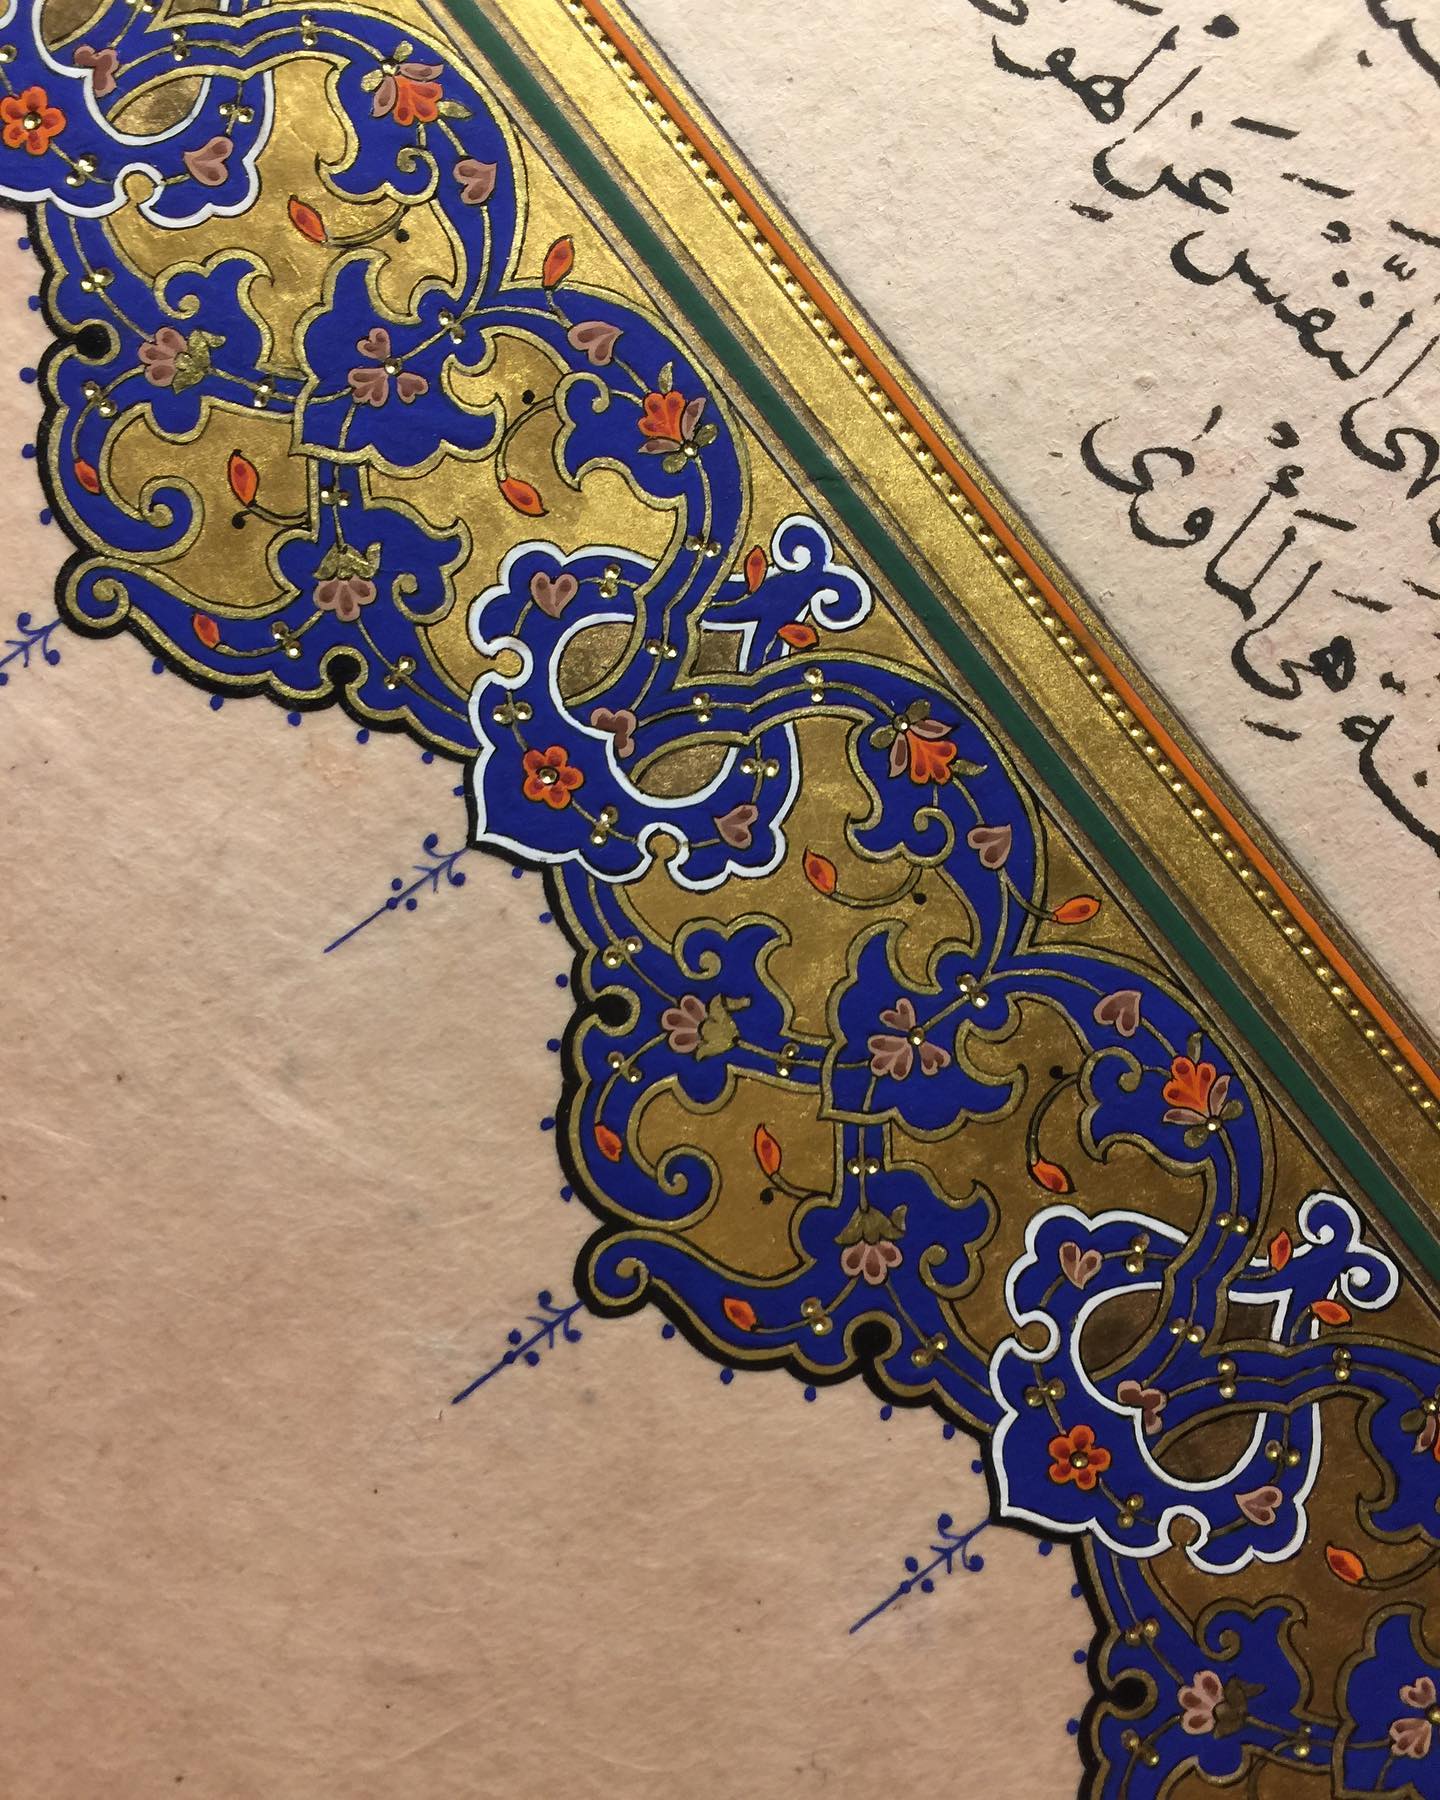 النَّفْسَ عَنِ الهَوىٰ
هِىَ المَأْوىٰ